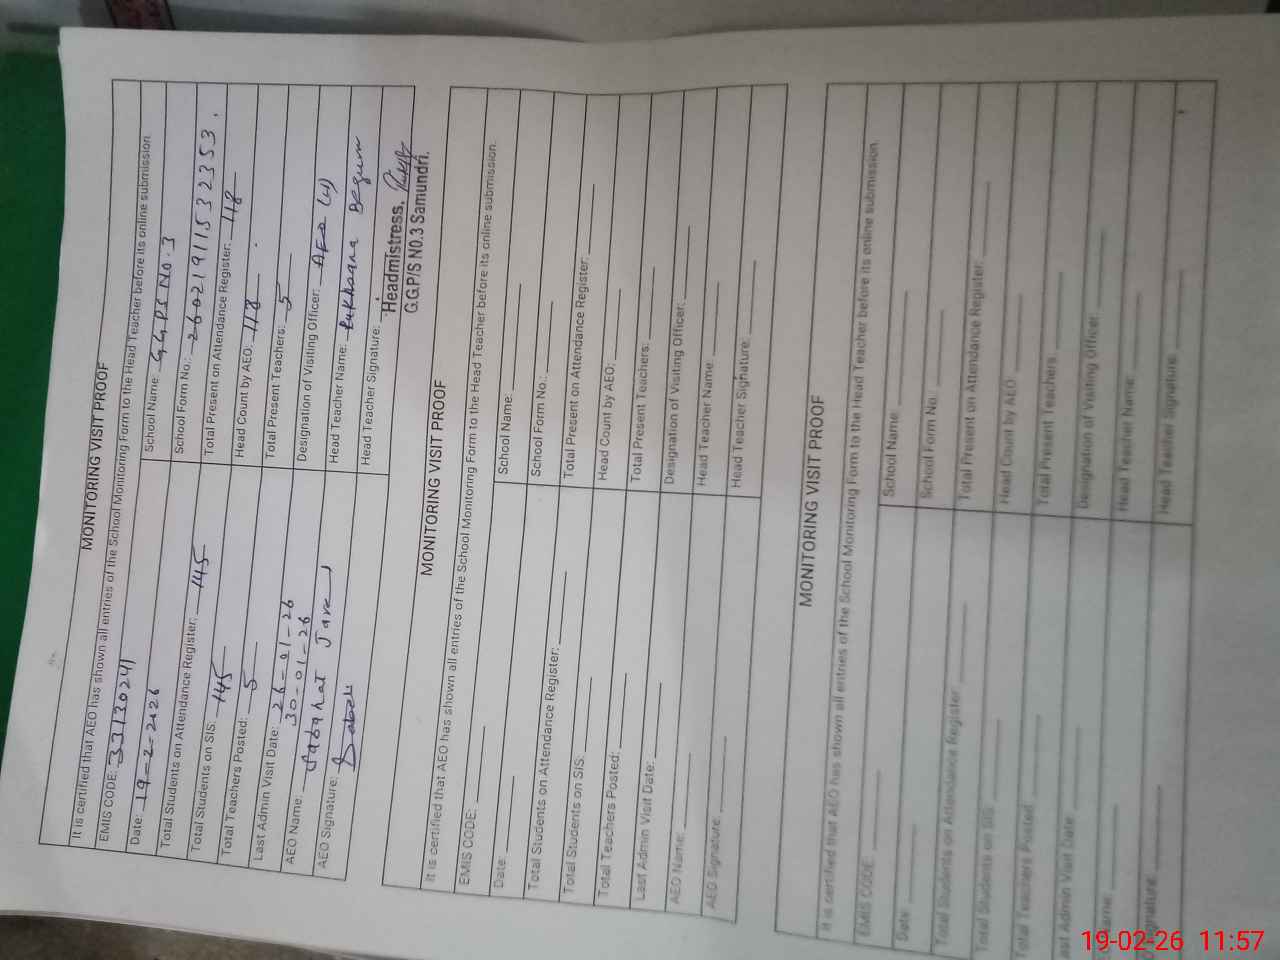 MONITORING VISIT PROOF
It is certified that AEO has shown all entries of the School Monitoring Form to the Head Teacher before its online submission.
EMIS CODE: 33130241
School Name: GGPS No. 3
Date: 19-2-2026
School Form No.: 26021911532353.
Total Students on Attendance Register: 145
Total Present on Attendance Register: 118
Total Students on SIS: 145
Head Count by AEO: 118
Total Teachers Posted: 5
Total Present Teachers: 5
Last Admin Visit Date: 26-01-26
30-01-26
Designation of Visiting Officer: AEO (W)
AEO Name: Sabahat
Head Teacher Name: Rukhsana Begum
AEO Signature:
Head Teacher Signature:
Headmistress,
G.G.P/S NO.3 Samundri.
MONITORING VISIT PROOF
It is certified that AEO has shown all entries of the School Monitoring Form to the Head Teacher before its online submission.
EMIS CODE:
School Name:
Date:
School Form No.:
Total Students on Attendance Register:
Total Present on Attendance Register:
Total Students on SIS:
Head Count by AEO:
Total Teachers Posted:
Total Present Teachers:
Last Admin Visit Date:
Designation of Visiting Officer:
AEO Name:
Head Teacher Name:
AEO Signature:
Head Teacher Signature:
MONITORING VISIT PROOF
It is certified that AEO has shown all entries of the School Monitoring Form to the Head Teacher before its online submission.
EMIS CODE:
School Name:
Date:
School Form No.
Total Students on Attendance Register
Total Present on Attendance Register:
Total Students on SIS
Head Count by AEO:
Total Teachers Posted
Total Present Teachers
Last Admin Visit Date
Designation of Visiting Officer:
Name:
Head Teacher Name:
Signature:
Head Teacher Signature:
19-02-26 11:57